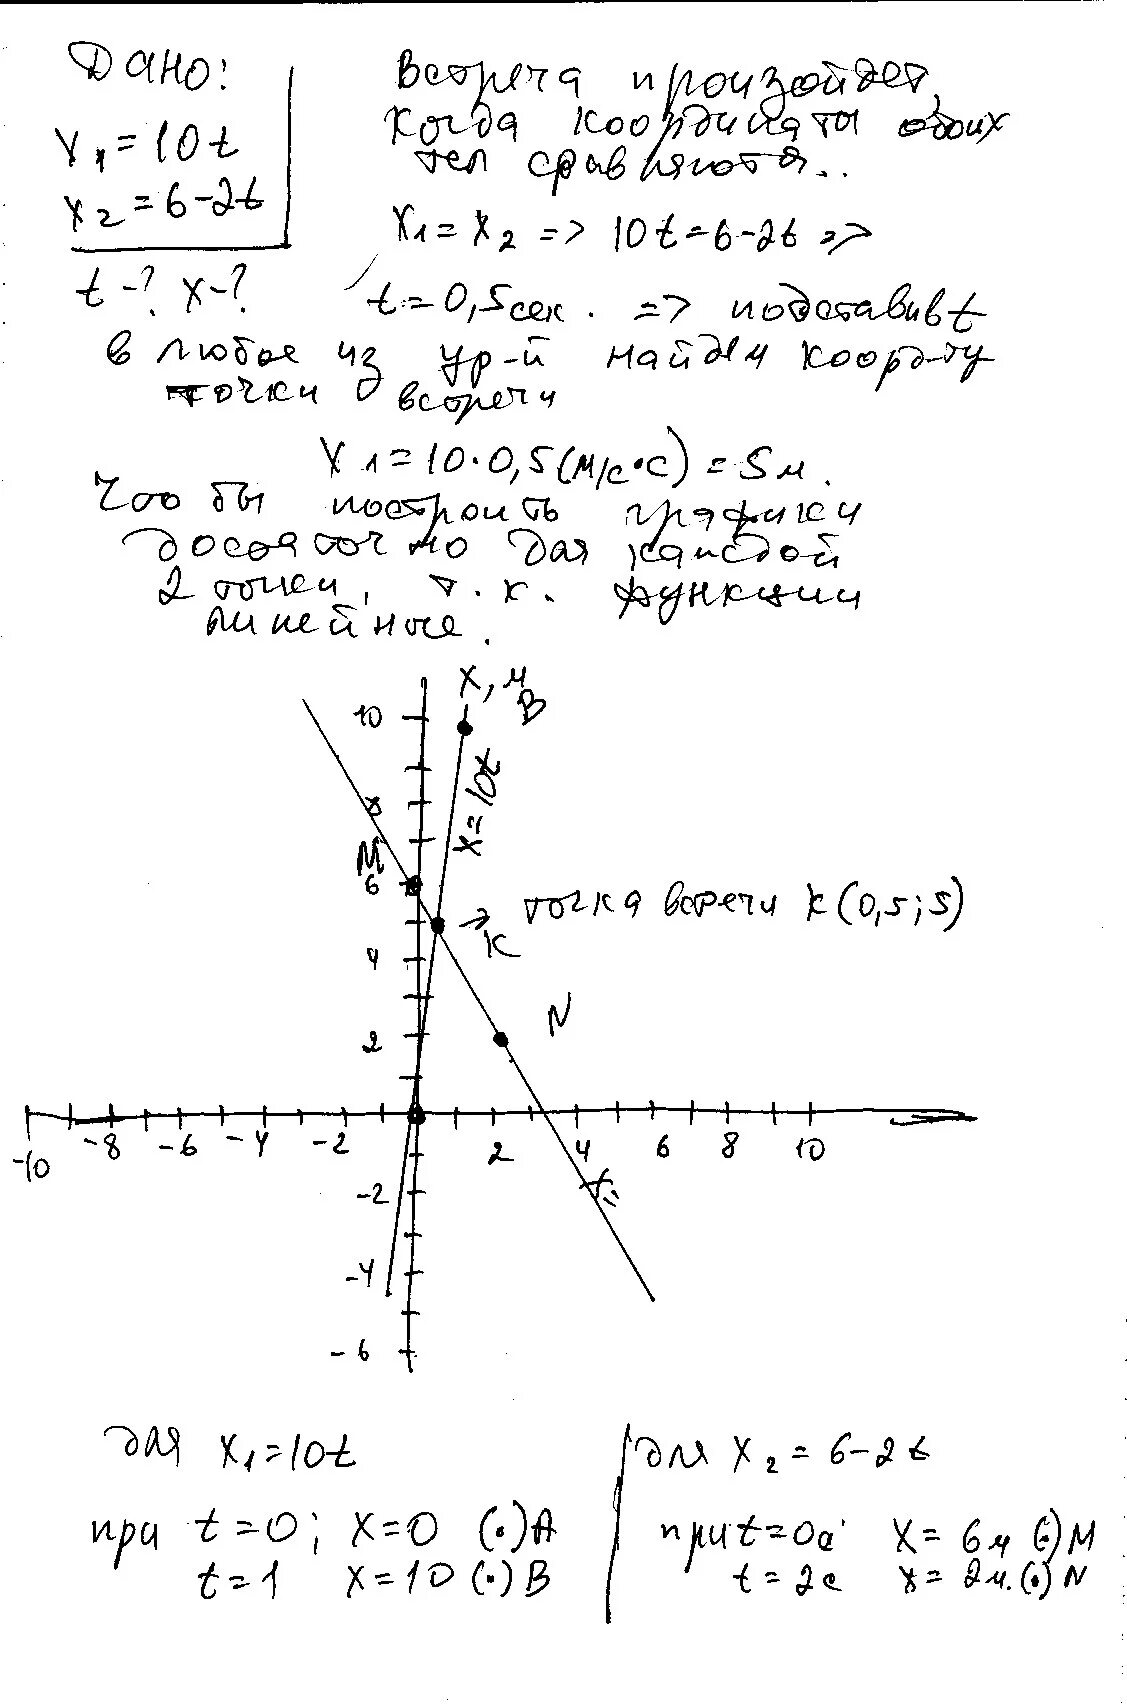 Дано:
x₁ = 10t
x₂ = 6-2t
t-? x-?
встреча произойдет,
когда координаты обоих
тел сравняются..
x₁ = x₂ => 10t = 6-2t =>
t = 0,5 сек. => подставив t
в любое из ур-й найдем коорд-ту
точки встречи
x₁ = 10·0,5 (м/с·с) = 5м.
Что бы построить графики
достаточно для каждой
2 точки, т.к. функции
линейные.
x, м
10
B
x=10t
8
M
6
K
точка встречи K(0,5;5)
4
N
2
-10 -8 -6 -4 -2 2 4 6 8 10
x=
-2
-4
-6
для x₁ = 10t
при t=0; x=0 (·)A
t=1 x=10 (·)B
для x₂ = 6-2t
при t=0с x=6м (·)M
t=2с x=2м. (·)N